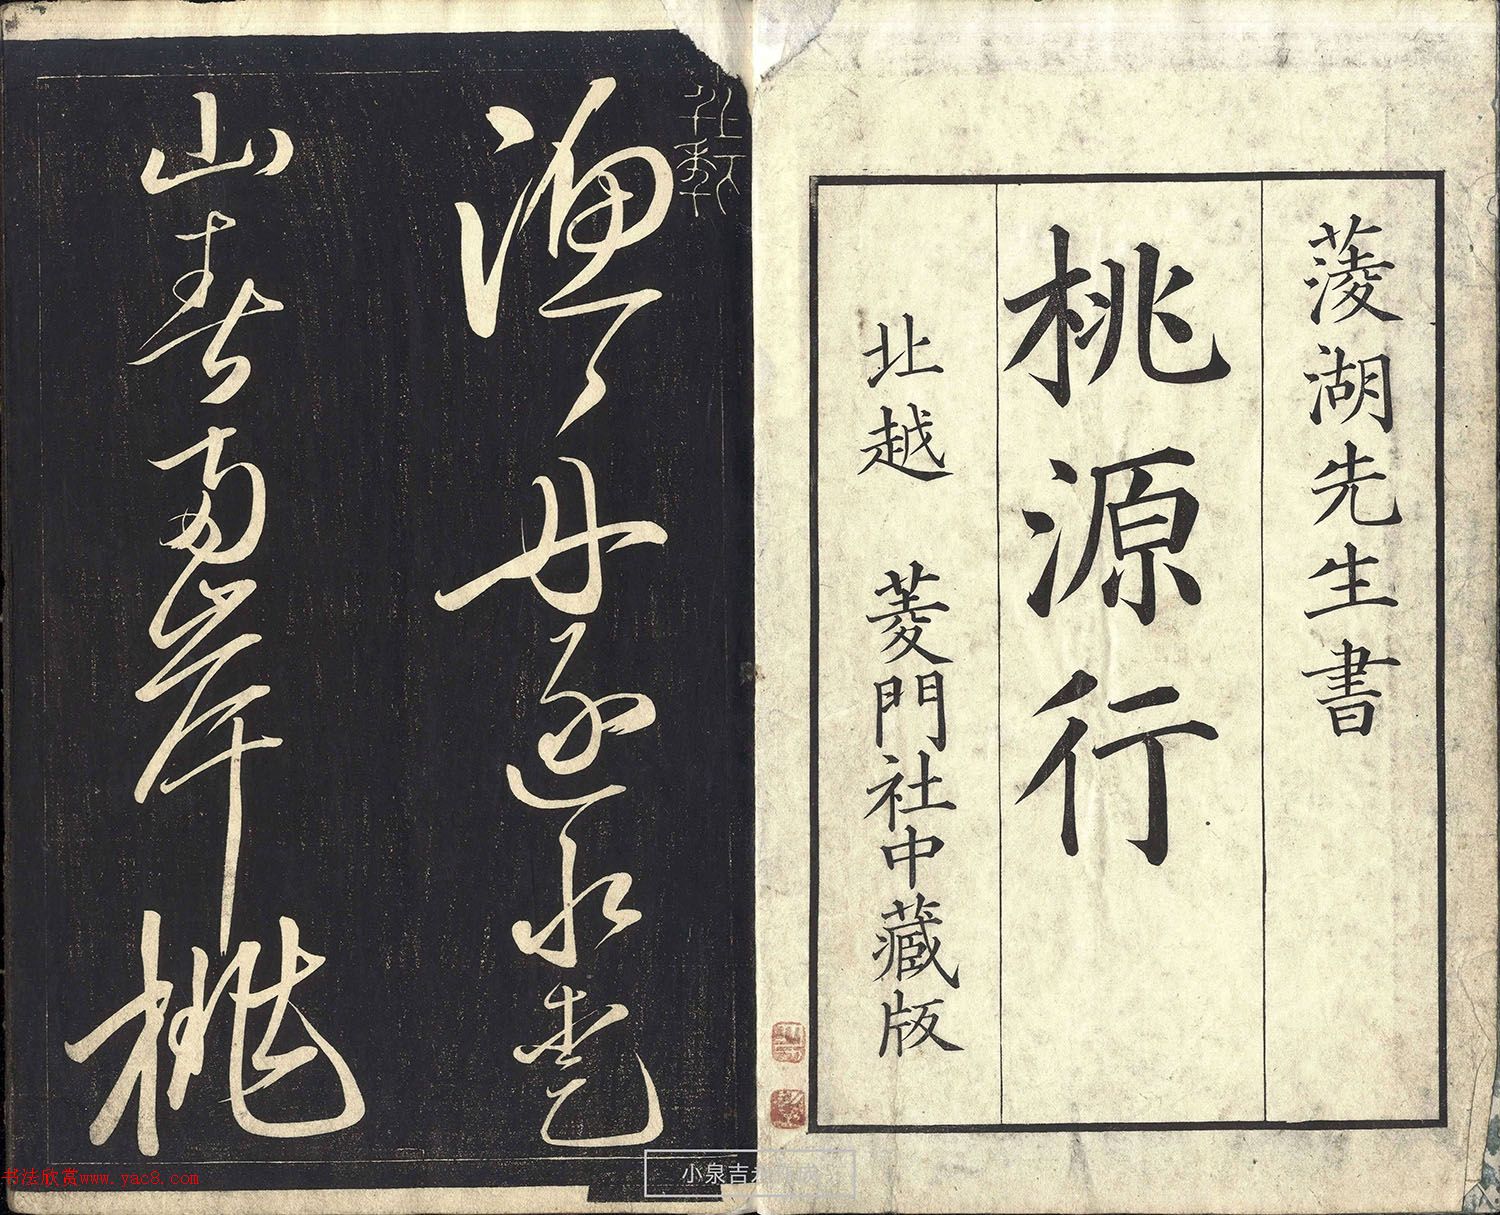 蔆湖先生書
桃源行
北越 菱門社中藏版
漁舟逐水愛
山春兩岸桃
书法欣赏www.yac8.com
小泉吉